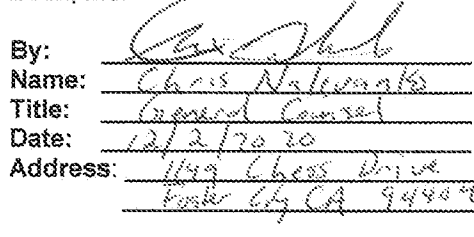 By:
Name: Chris
Title: General Counsel
Date: 12/2/2020
Address: 1149 Chess Drive
Foster City CA 94404